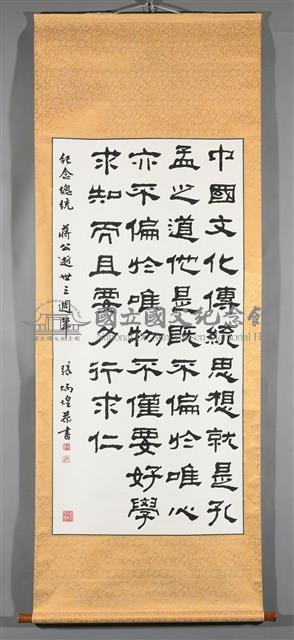 中國文化傳統思想就是孔
孟之道他是既不偏於唯心
亦不偏於唯物不僅要好學
求知而且要力行求仁
紀念總統 蔣公逝世三週年
張炳煌恭書
國立國父紀念館